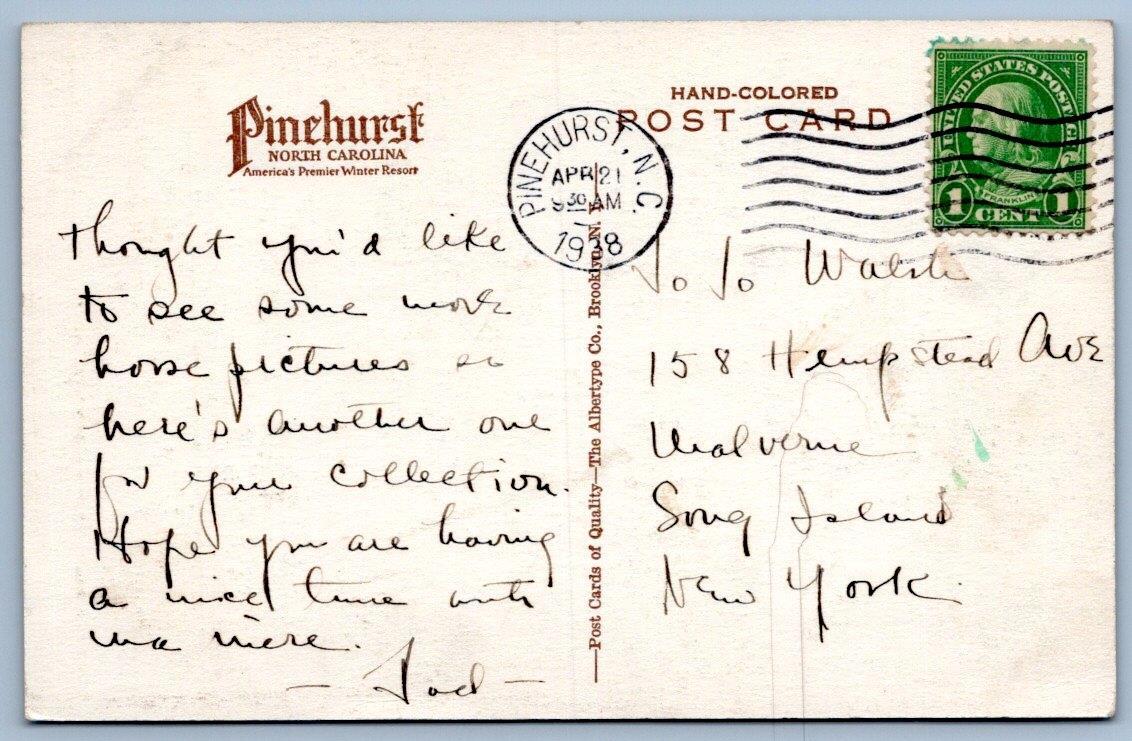 Pinehurst
NORTH CAROLINA
America's Premier Winter Resort
Thought you'd like
to see some more
horse pictures so
here's another one
for your collection.
Hope you are having
a nice time with
ma mere.
HAND-COLORED
POST CARD
PINEHURST, N.C.
APR 21
9 30 AM
1938
UNITED STATES POSTAGE
FRANKLIN
1 CENT 1
Jo Jo Walsh
158 Hempstead Ave
Malverne
Long Island
New York.
—Post Cards of Quality—The Albertype Co., Brooklyn, N. Y.—